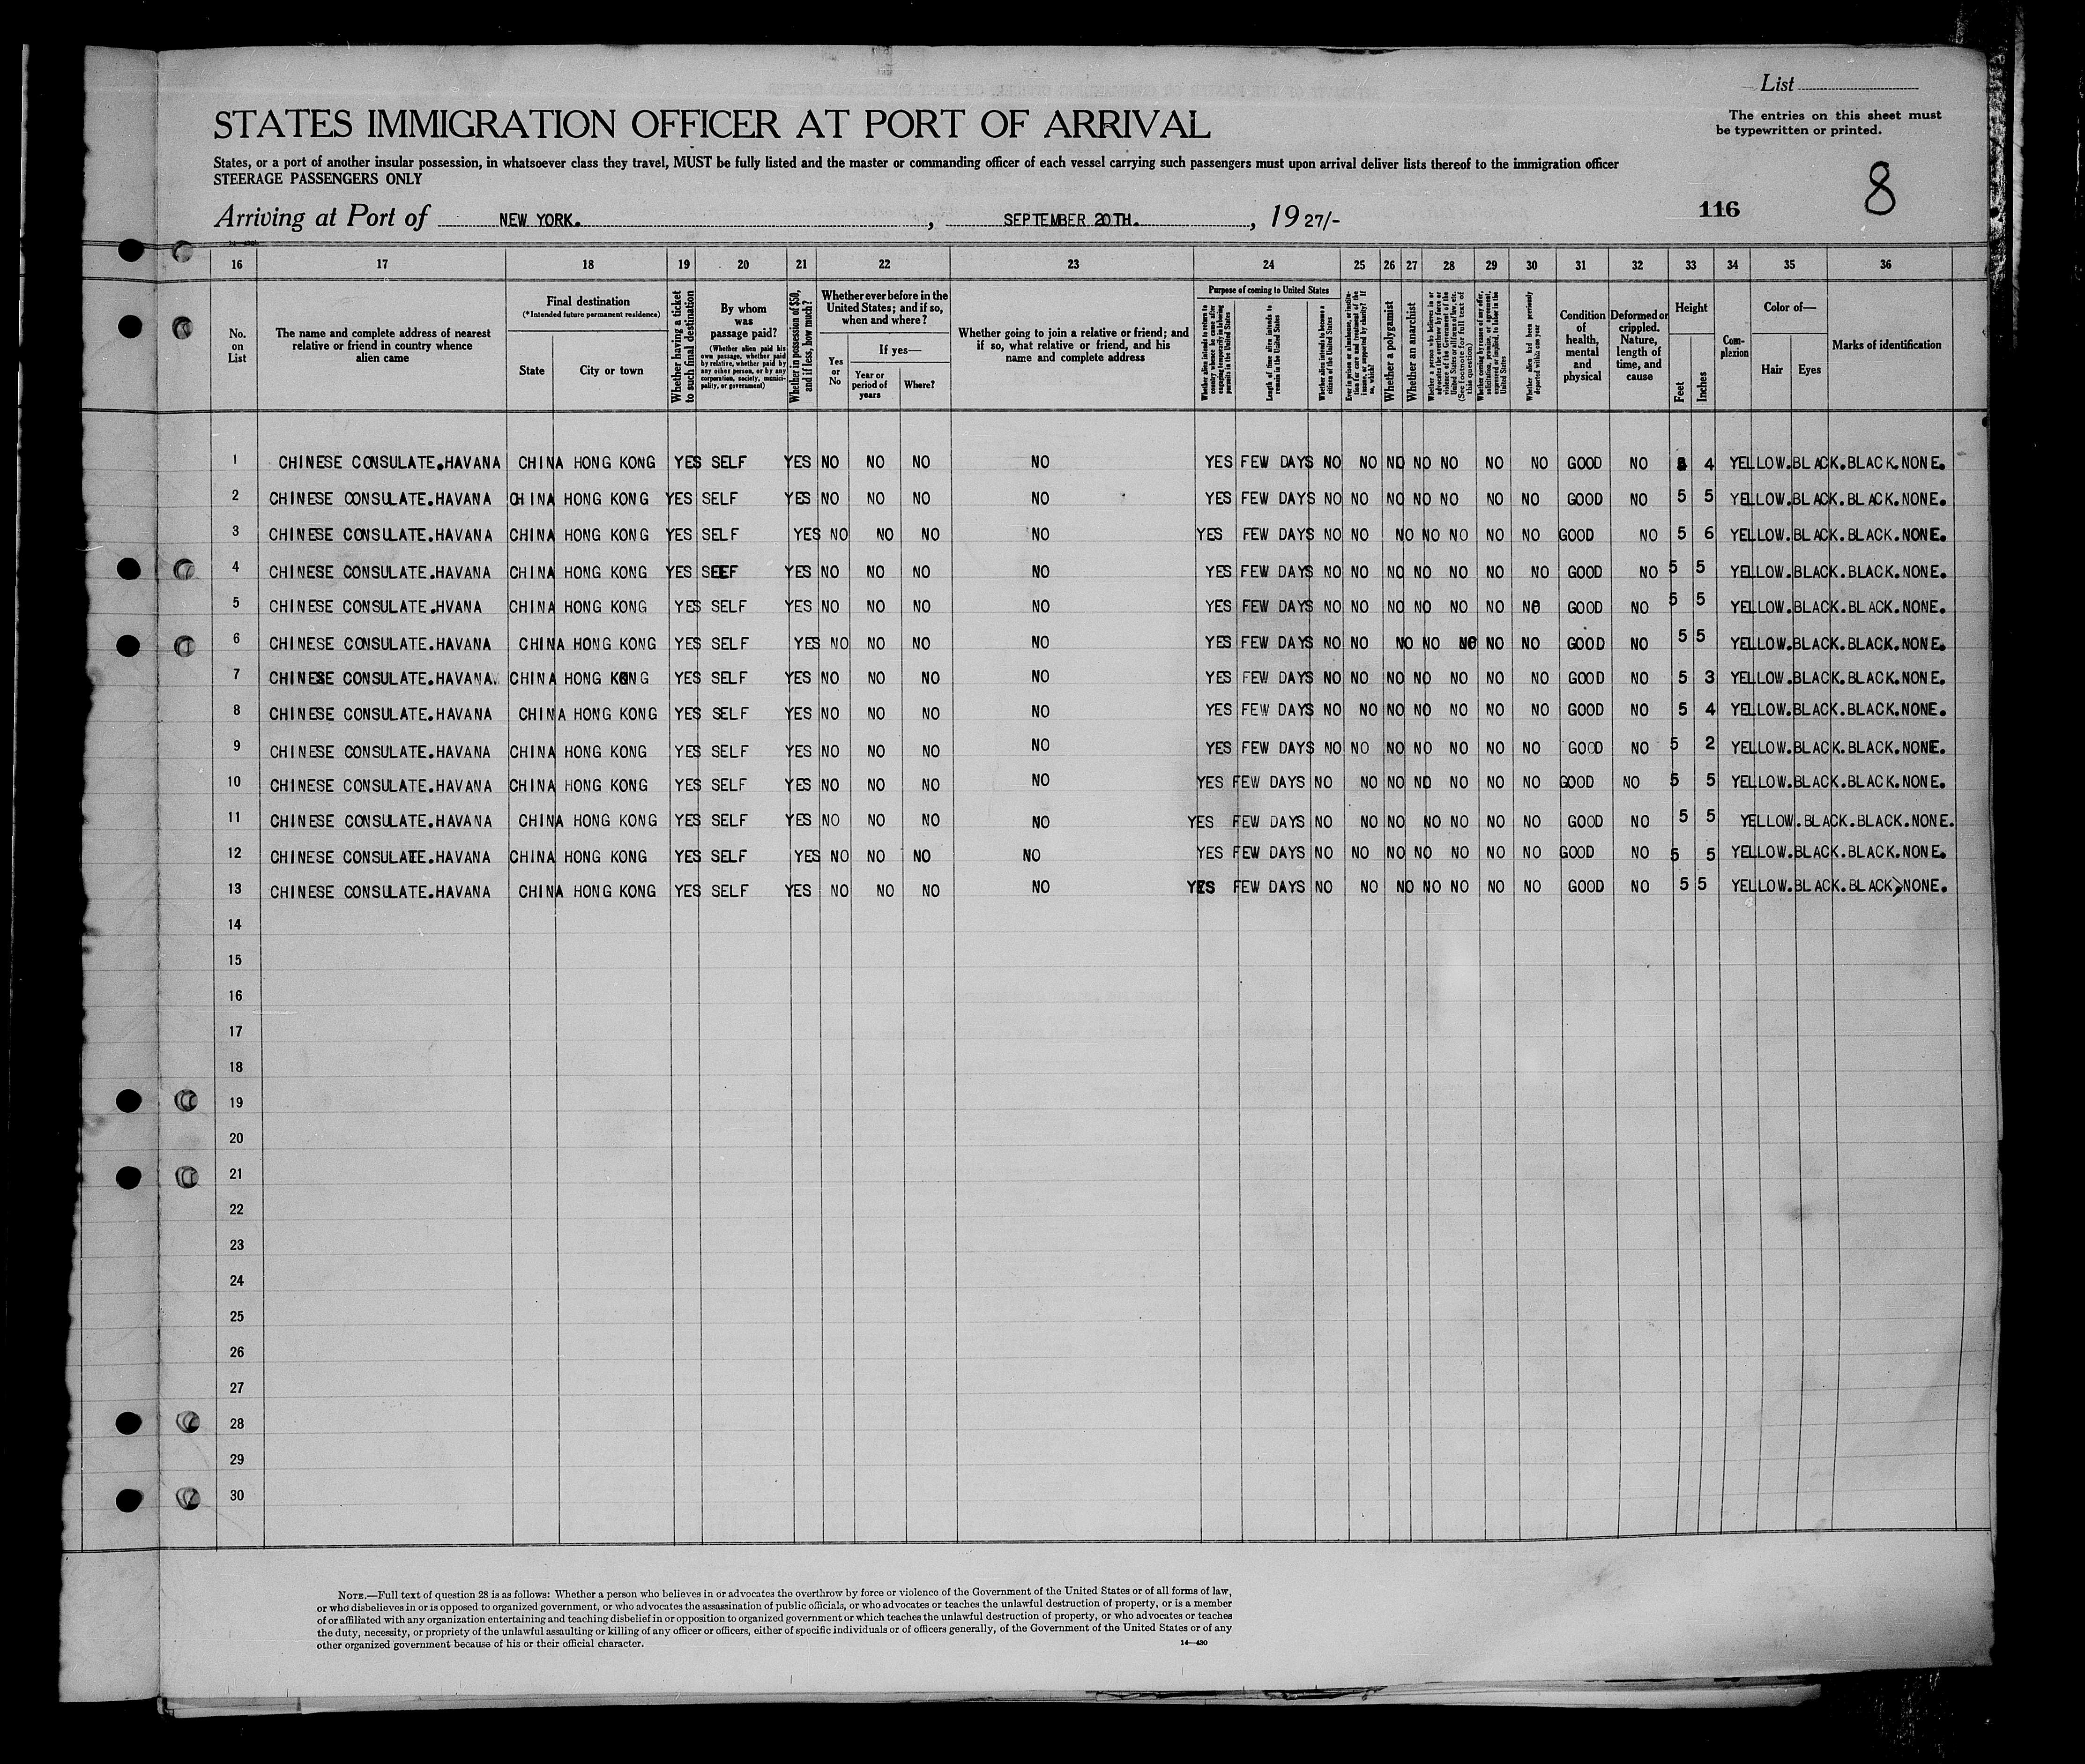 List
The entries on this sheet must
be typewritten or printed.
STATES IMMIGRATION OFFICER AT PORT OF ARRIVAL
States, or a port of another insular possession, in whatsoever class they travel, MUST be fully listed and the master or commanding officer of each vessel carrying such passengers must upon arrival deliver lists thereof to the immigration officer
STEERAGE PASSENGERS ONLY
116 8
Arriving at Port of NEW YORK. , SEPTEMBER 20TH. , 1927/-
16 17 18 19 20 21 22 23 24 25 26 27 28 29 30 31 32 33 34 35 36
No. on List
The name and complete address of nearest relative or friend in country whence alien came
Final destination
(*Intended future permanent residence)
State City or town
Whether having a ticket to such final destination
By whom was passage paid?
(Whether alien paid his own passage, whether paid by relative, whether paid by any other person, or by any corporation, society, municipality, or government)
Whether in possession of $50, and if less, how much?
Whether ever before in the United States; and if so, when and where?
Yes or No
If yes—
Year or period of years Where?
Whether going to join a relative or friend; and if so, what relative or friend, and his name and complete address
Purpose of coming to United States
Whether alien intends to return to country whence he came after engaging temporarily in laboring pursuits in the United States
Length of time alien intends to remain in the United States
Whether alien intends to become a citizen of the United States
Ever in prison or almshouse, or institution for care and treatment of the insane, or supported by charity? If so, which?
Whether a polygamist
Whether an anarchist
(See footnote for full text of this question)
Whether alien had been previously deported within one year
Condition of health, mental and physical
Deformed or crippled. Nature, length of time, and cause
Height
Feet Inches
Complexion
Color of—
Hair Eyes
Marks of identification
1 CHINESE CONSULATE.HAVANA CHINA HONG KONG YES SELF YES NO NO NO NO YES FEW DAYS NO NO NO NO NO NO NO GOOD NO 4 YELLOW.BLACK.BLACK.NONE.
2 CHINESE CONSULATE.HAVANA CHINA HONG KONG YES SELF YES NO NO NO NO YES FEW DAYS NO NO NO NO NO NO NO GOOD NO 5 5 YELLOW.BLACK.BLACK.NONE.
3 CHINESE CONSULATE.HAVANA CHINA HONG KONG YES SELF YES NO NO NO NO YES FEW DAYS NO NO NO NO NO NO NO GOOD NO 5 6 YELLOW.BLACK.BLACK.NONE.
4 CHINESE CONSULATE.HAVANA CHINA HONG KONG YES SEEF YES NO NO NO NO YES FEW DAYS NO NO NO NO NO NO NO GOOD NO 5 5 YELLOW.BLACK.BLACK.NONE.
5 CHINESE CONSULATE.HVANA CHINA HONG KONG YES SELF YES NO NO NO NO YES FEW DAYS NO NO NO NO NO NO NO GOOD NO 5 5 YELLOW.BLACK.BLACK.NONE.
6 CHINESE CONSULATE.HAVANA CHINA HONG KONG YES SELF YES NO NO NO NO YES FEW DAYS NO NO NO NO NO NO NO GOOD NO 5 5 YELLOW.BLACK.BLACK.NONE.
7 CHINESE CONSULATE.HAVANA. CHINA HONG KONG YES SELF YES NO NO NO NO YES FEW DAYS NO NO NO NO NO NO NO GOOD NO 5 3 YELLOW.BLACK.BLACK.NONE.
8 CHINESE CONSULATE.HAVANA CHINA HONG KONG YES SELF YES NO NO NO NO YES FEW DAYS NO NO NO NO NO NO NO GOOD NO 5 4 YELLOW.BLACK.BLACK.NONE.
9 CHINESE CONSULATE.HAVANA CHINA HONG KONG YES SELF YES NO NO NO NO YES FEW DAYS NO NO NO NO NO NO NO GOOD NO 5 2 YELLOW.BLACK.BLACK.NONE.
10 CHINESE CONSULATE.HAVANA CHINA HONG KONG YES SELF YES NO NO NO NO YES FEW DAYS NO NO NO NO NO NO NO GOOD NO 5 5 YELLOW.BLACK.BLACK.NONE.
11 CHINESE CONSULATE.HAVANA CHINA HONG KONG YES SELF YES NO NO NO NO YES FEW DAYS NO NO NO NO NO NO NO GOOD NO 5 5 YELLOW.BLACK.BLACK.NONE.
12 CHINESE CONSULATE.HAVANA CHINA HONG KONG YES SELF YES NO NO NO NO YES FEW DAYS NO NO NO NO NO NO NO GOOD NO 5 5 YELLOW.BLACK.BLACK.NONE.
13 CHINESE CONSULATE.HAVANA CHINA HONG KONG YES SELF YES NO NO NO NO YES FEW DAYS NO NO NO NO NO NO NO GOOD NO 5 5 YELLOW.BLACK.BLACK,NONE.
14
15
16
17
18
19
20
21
22
23
24
25
26
27
28
29
30
NOTE.—Full text of question 28 is as follows: Whether a person who believes in or advocates the overthrow by force or violence of the Government of the United States or of all forms of law,
or who disbelieves in or is opposed to organized government, or who advocates the assassination of public officials, or who advocates or teaches the unlawful destruction of property, or is a member
of or affiliated with any organization entertaining and teaching disbelief in or opposition to organized government or which teaches the unlawful destruction of property, or who advocates or teaches
the duty, necessity, or propriety of the unlawful assaulting or killing of any officer or officers, either of specific individuals or of officers generally, of the Government of the United States or of any
other organized government because of his or their official character.
14—430